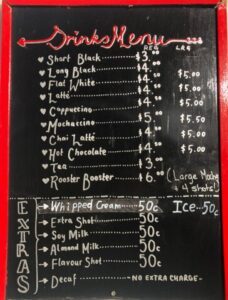 Drinks Menu
REG LRG
Short Black $3.00
Long Black $4.
Flat White $4.50 $5.00
Latté $4. $5.00
Cappuccino $4. $5.00
Mochaccino $5. $5.50
Chai Latté $4. $5.00
Hot Chocolate $4. $5.00
Tea $3.
Rooster Booster $6.00 (Large Mocha + 4 shots!)
EXTRAS
Whipped Cream 50c Ice 50c
Extra Shot 50c
Soy Milk 50c
Almond Milk 50c
Flavour Shot 50c
Decaf - NO EXTRA CHARGE -